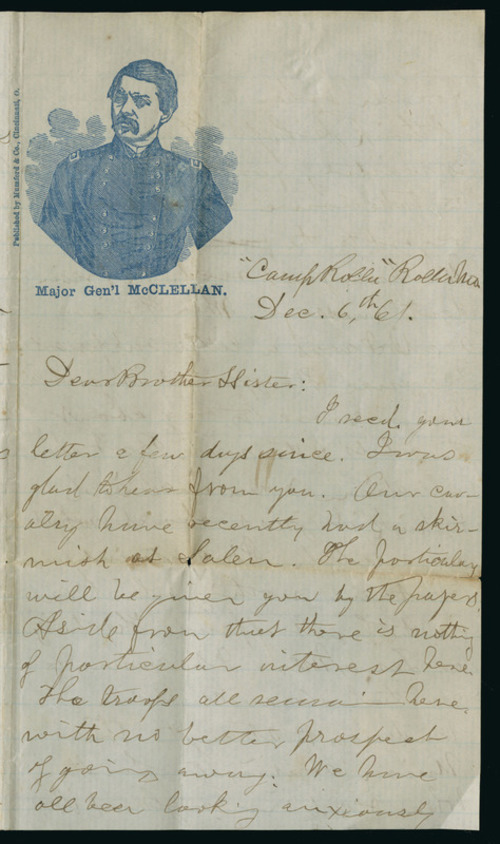 Published by Mumford & Co., Cincinnati, O.
Major Gen'l McCLELLAN.
"Camp Rolla" Rolla Mo.
Dec. 6,th 61.
Dear Brother & Sister:
I recd. your
letter a few days since. I was
glad to hear from you. Our cav-
alry have recently had a skir-
mish at Salem. The particulars
will be given you by the papers.
Aside from that there is nothing
of particular interest here.
The troops all remain here.
with no better prospect
of going away. We have
all been looking anxiously